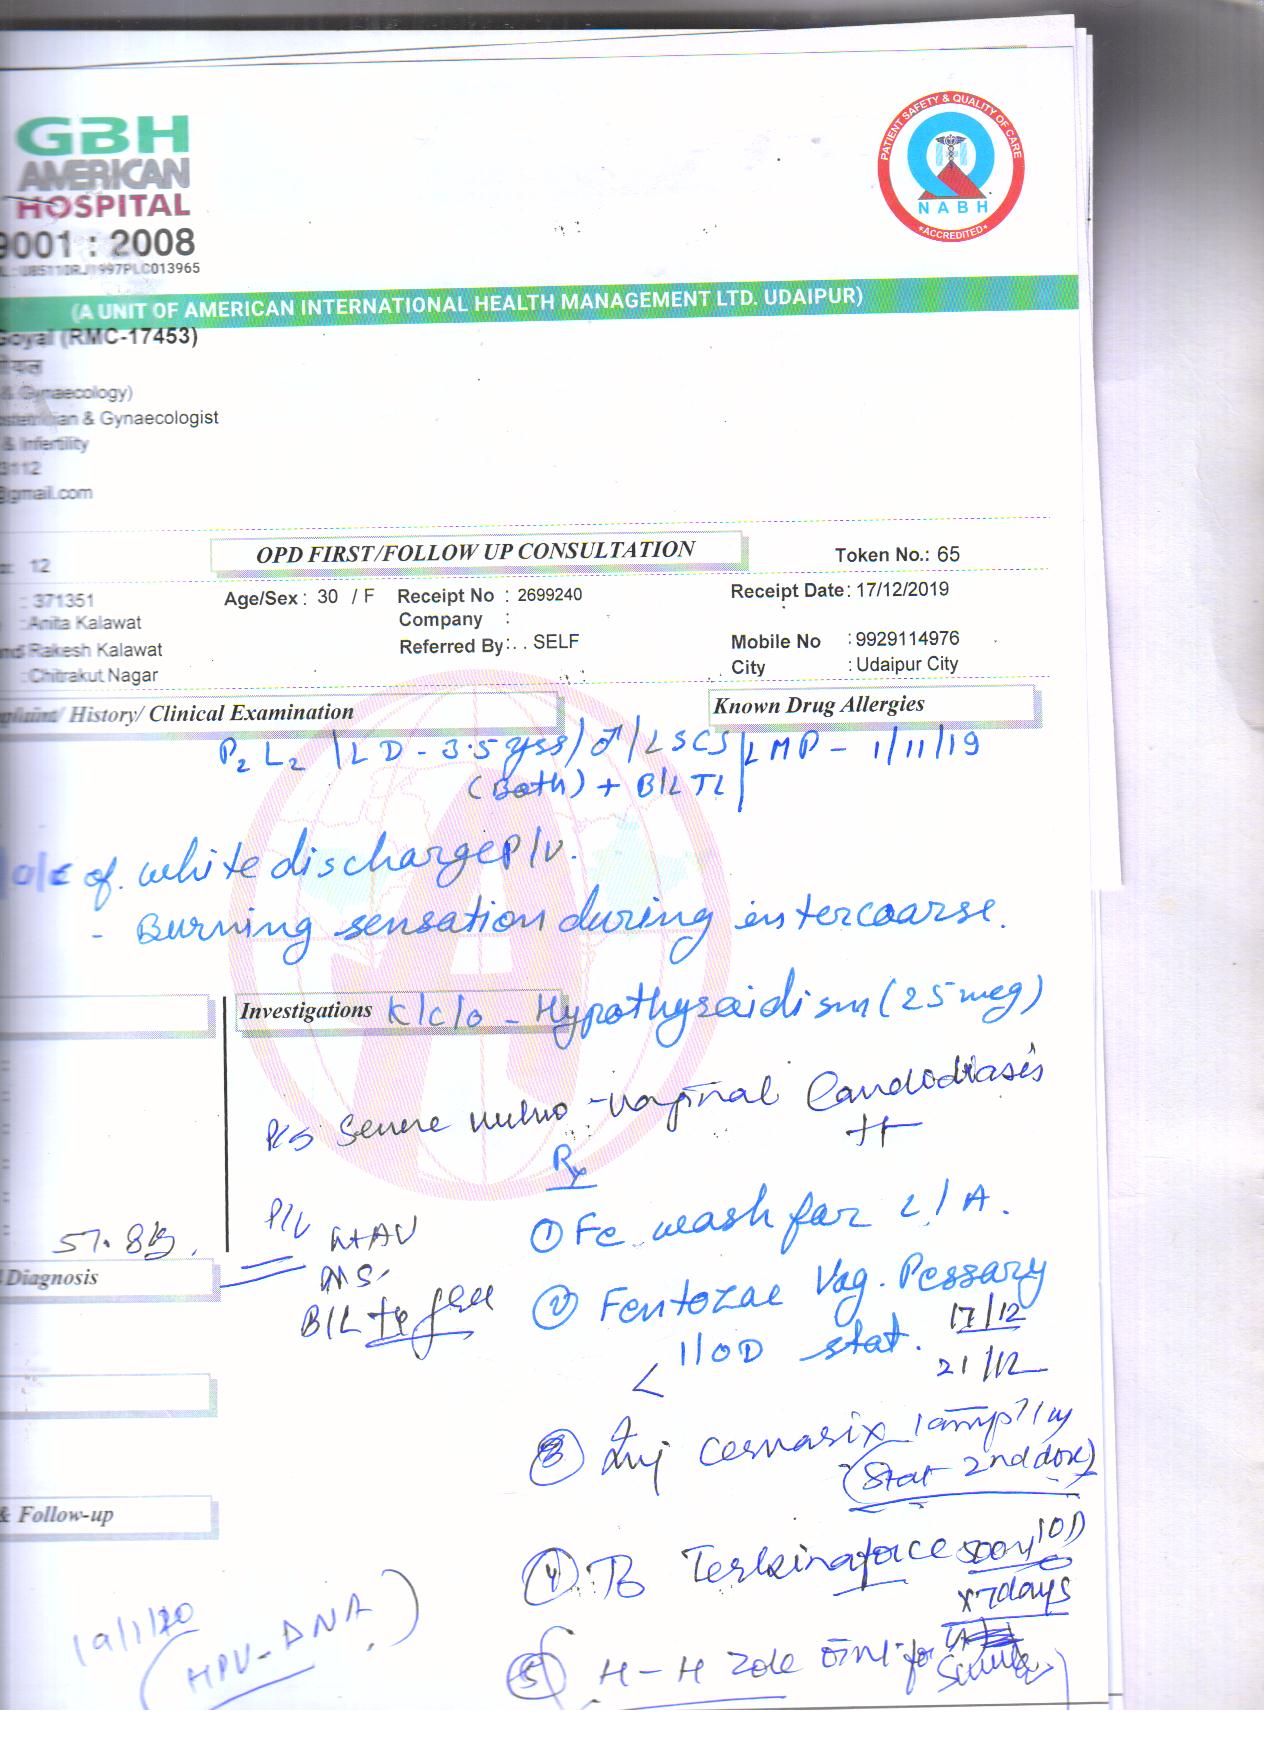 GBH
AMERICAN
HOSPITAL
9001 : 2008
PATIENT SAFETY & QUALITY OF CARE
NABH
•ACCREDITED•
(A UNIT OF AMERICAN INTERNATIONAL HEALTH MANAGEMENT LTD. UDAIPUR)
Goyal (RMC-17453)
& Gynaecology)
& Gynaecologist
& Infertility
3112
@gmail.com
OPD FIRST/FOLLOW UP CONSULTATION
Token No.: 65
12
: 371351
Age/Sex : 30 / F
Receipt No : 2699240
Receipt Date: 17/12/2019
: Anita Kalawat
Company :
Rakesh Kalawat
Referred By: . . SELF
Mobile No : 9929114976
: Chitrakut Nagar
City : Udaipur City
/ History/ Clinical Examination
Known Drug Allergies
P2 L2 / LD - 3.5 yrs / ♂ / LSCS | LMP - 1/11/19
(Both) + B/L TL
of white discharge P/V.
- Burning sensation during intercoarse.
Investigations K/C/O - Hypothyroidism (25 mcg)
P/S Severe vulvo-vaginal Candodiasis
++
Rx
P/V
① Fc wash for L/A.
57.8
Diagnosis
② Vag. Pessary
B/L free
1/OD stat.
17/12
21/12
③ Inj 1 amp
(Stat 2nd dose)
& Follow-up
④ Tb Terbinaforce 500 1OD
x 7days
(HPV-DNA)
⑤ H-H Zole oint. for